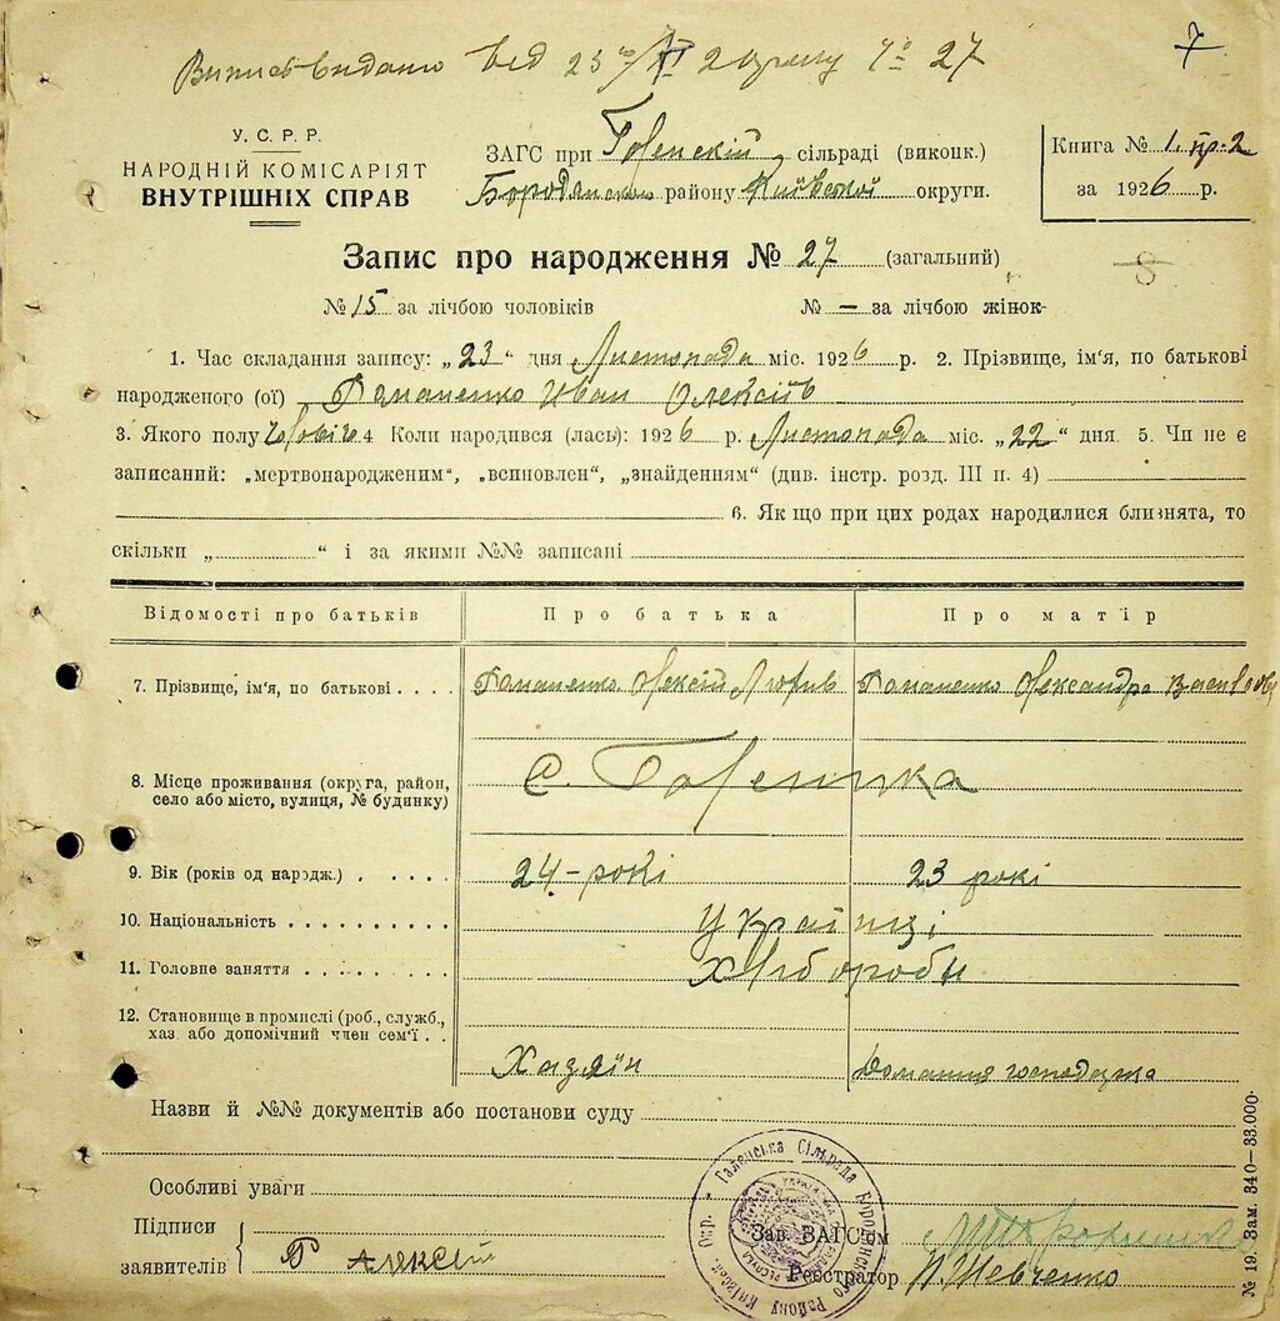 7
від 23 27
У. С. Р. Р.
НАРОДНІЙ КОМІСАРІЯТ
ВНУТРІШНІХ СПРАВ
ЗАГС при сільраді (виконк.)
Бородянському району Київської округи.
Книга № 1. пр. 2
за 1926 р.
Запис про народження № 27 (загальний)
8
№ 15 за лічбою чоловіків № — за лічбою жінок-
1. Час складання запису: „23“ дня Листопада міс. 1926 р. 2. Прізвище, ім'я, по батькові
народженого (ої) Романенко Иван Олексіїв
3. Якого полу 4 Коли народився (лась): 1926 р. Листопада міс. „22“ дня. 5. Чи не є
записаний: „мертвонародженим“, „всиновлен“, „знайденням“ (див. інстр. розд. III п. 4)
6. Як що при цих родах народилися близнята, то
скільки „ “ і за якими №№ записані
Відомості про батьків Про батька Про матір
7. Прізвище, ім'я, по батькові . . . . Романенко Олексій Романенко Олександра
8. Місце проживання (округа, район,
село або місто, вулиця, № будинку)
С.
9. Вік (років од народж.) . . . . . 24-рокі 23 рокі
10. Національність . . . . . . . . . . Українці
11. Головне заняття . . . . . . . . Хліботроби
12. Становище в промислі (роб., служб.,
хаз. або допомічний член сем'ї . .
Хазяїн Домашня господарка
Назви й №№ документів або постанови суду
Особливі уваги
Підписи
заявителів
Р Алексей
Галенська Сільрада Бородянського Району Київськ. Окр.
Зав. ЗАГС'ом
Реєстратор П. Шевченко
№ 19. Зам. 340—33.000.